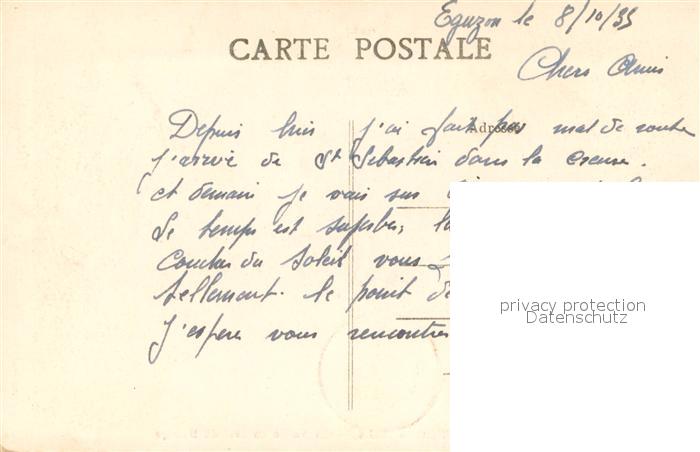 Eguzon le 8/10/35
CARTE POSTALE
Chers Amis
Depuis hier j'ai fait pas mal de route
Adresse
j'arrive de St Sebastien dans la Creuse.
et demain je vais sur
Le temps est superbe, la
Coucher du Soleil vous
tellement. le point de
J'espère vous rencontrer
privacy protection
Datenschutz